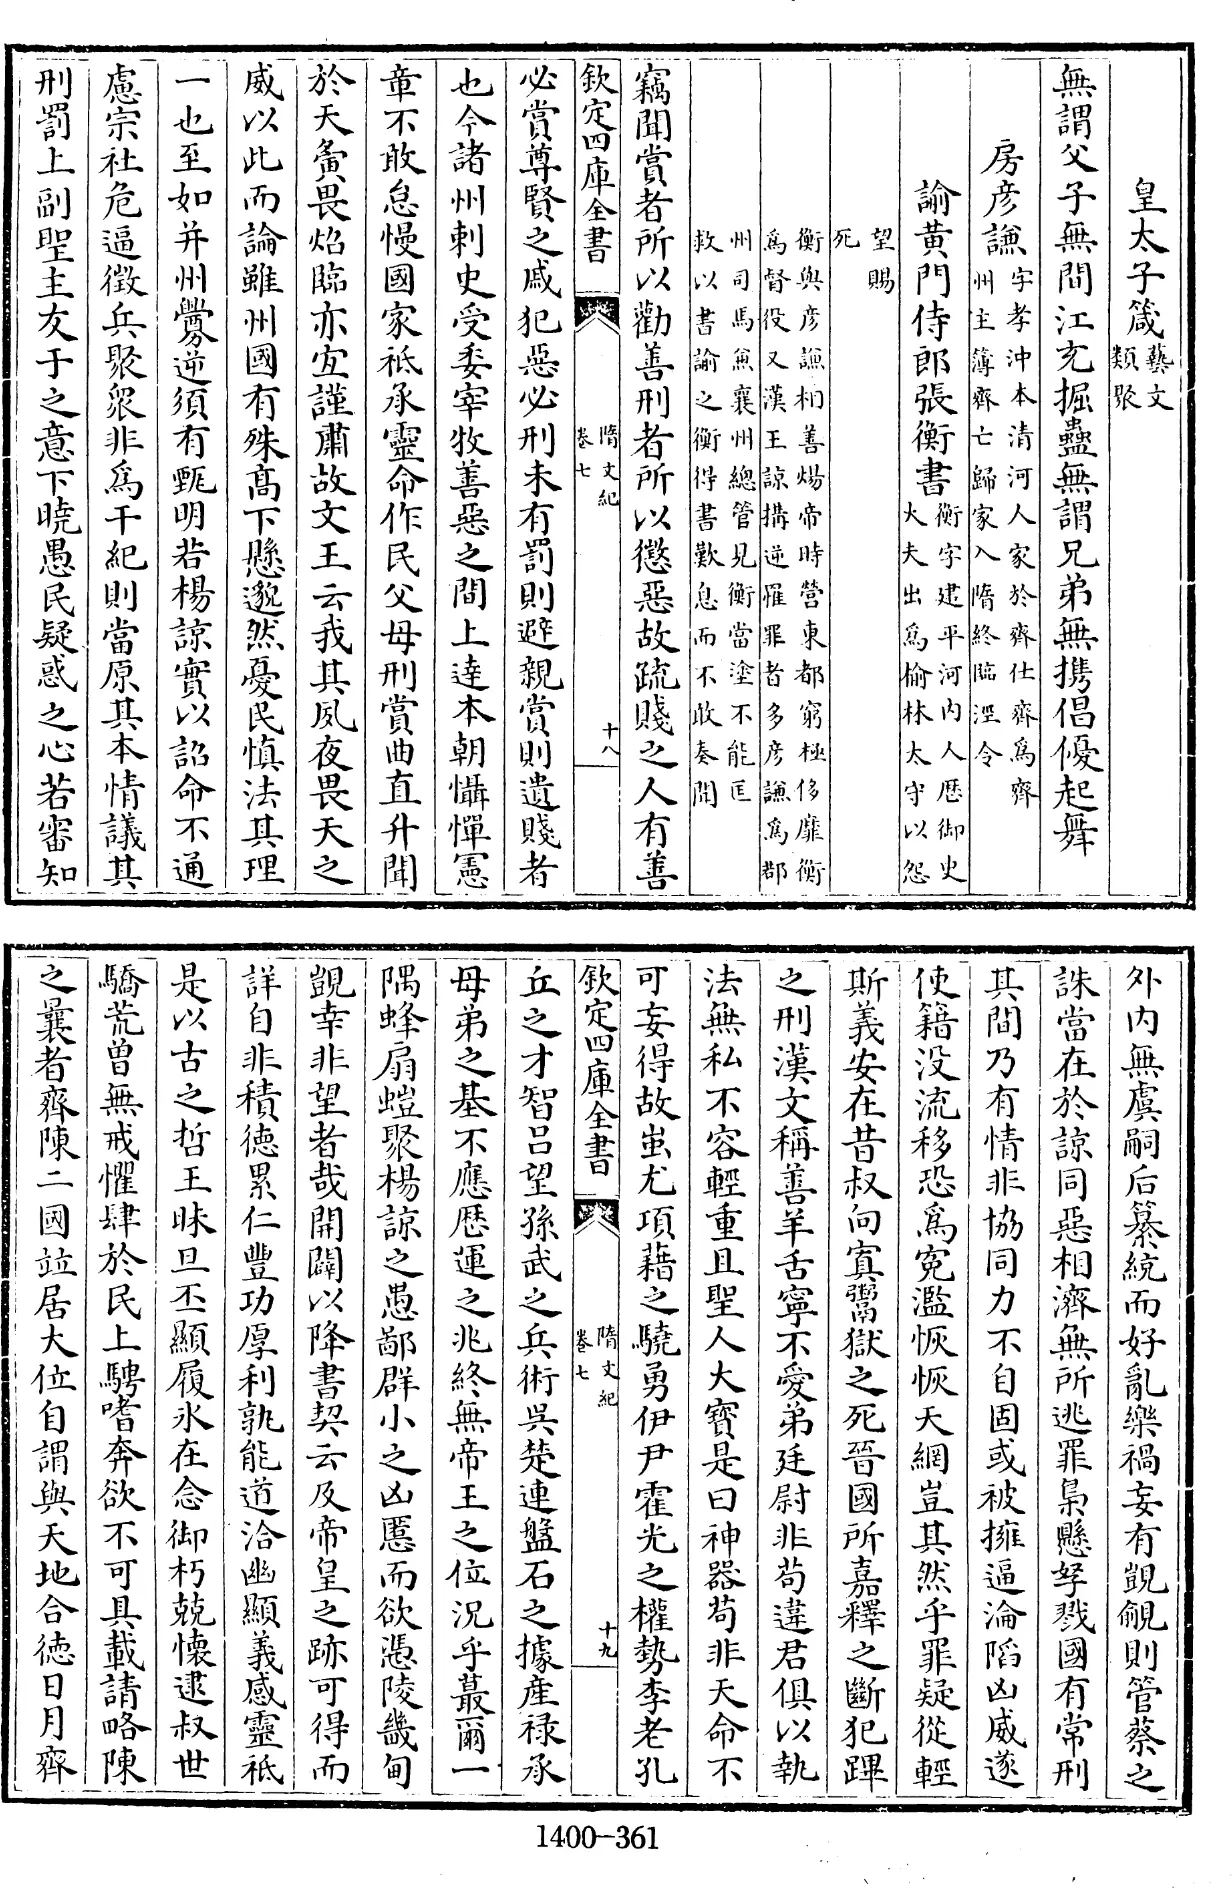 皇太子箴藝文類聚
無謂父子無間江充掘蠱無謂兄弟無携倡優起舞
房彦謙字孝沖本清河人家於齊仕齊爲齊州主簿齊亡歸家入隋終臨涇令
諭黄門侍郎張衡書衡字建平河内人歴御史大夫出爲榆林太守以怨
望賜死
衡與彦謙相善煬帝時營東都窮極侈靡衡爲督役又漢王諒搆逆罹罪者多彦謙爲郡
州司馬爲襄州總管見衡當塗不能匡救以書諭之衡得書歎息而不敢奏聞
竊聞賞者所以勸善刑者所以懲惡故疏賤之人有善
欽定四庫全書
隋文紀
卷七
十八
必賞尊賢之戚犯惡必刑未有罰則避親賞則遺賤者
也今諸州刺史受委宰牧善惡之間上達本朝懾憚憲
章不敢怠慢國家祗承靈命作民父母刑賞曲直升聞
於天夤畏炤臨亦宜謹肅故文王云我其夙夜畏天之
威以此而論雖州國有殊高下懸邈然憂民慎法其理
一也至如并州釁逆須有甄明若楊諒實以詔命不通
慮宗社危逼徵兵聚衆非爲干紀則當原其本情議其
刑罰上副聖主友于之意下曉愚民疑惑之心若審知
外内無虞嗣后纂統而好亂樂禍妄有覬覦則管蔡之
誅當在於諒同惡相濟無所逃罪梟懸孥戮國有常刑
其間乃有情非協同力不自固或被擁逼淪陷凶威遂
使籍没流移恐爲寃濫恢恢天網豈其然乎罪疑從輕
斯義安在昔叔向寘鬻獄之死晉國所嘉釋之斷犯蹕
之刑漢文稱善羊舌寧不愛弟廷尉非苟違君俱以執
法無私不容輕重且聖人大寳是曰神器苟非天命不
可妄得故蚩尤項藉之驍勇伊尹霍光之權勢李老孔
欽定四庫全書
隋文紀
卷七
十九
丘之才智吕望孫武之兵術吳楚連盤石之據産禄承
母弟之基不應歴運之兆終無帝王之位況乎蕞爾一
隅蜂扇螘聚楊諒之愚鄙群小之凶慝而欲憑陵畿甸
覬幸非望者哉開闢以降書契云及帝皇之跡可得而
詳自非積德累仁豐功厚利孰能道洽幽顯義感靈祇
是以古之哲王昧旦丕顯履氷在念御朽兢懷逮叔世
驕荒曾無戒懼肆於民上騁嗜奔欲不可具載請略陳
之曩者齊陳二國並居大位自謂與天地合德日月齊
1400-361